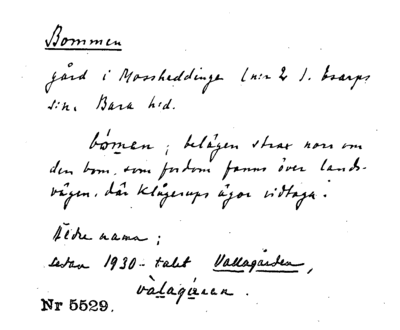 Bommen
gård i Mossheddinge (n:r 2), Esarps
s:n, Bara h:d.
bómen; belägen strax norr om
den bom, som fordom fanns över lands-
vägen, där Klågerups ägor vidtaga.
Äldre namn;
sedan 1930-talet Vallagården,
vàlagǻren.
Nr 5529.